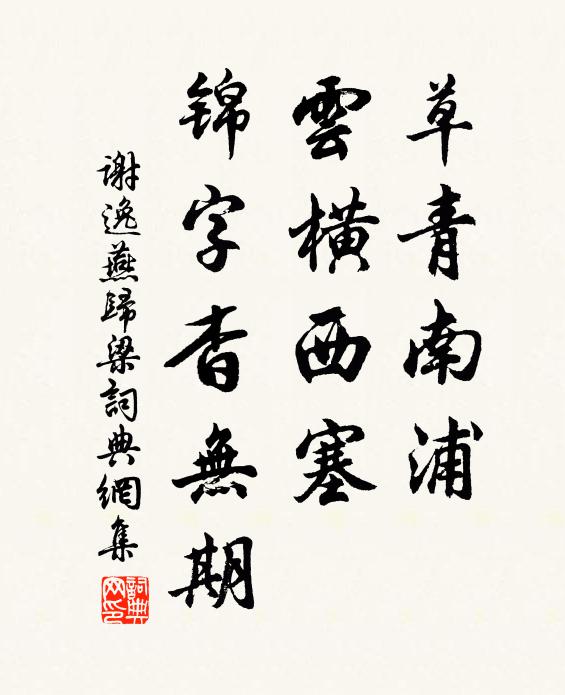 草青南浦
雲橫西塞
錦字杳無期
謝逸燕歸梁詞典網集
詞典網印